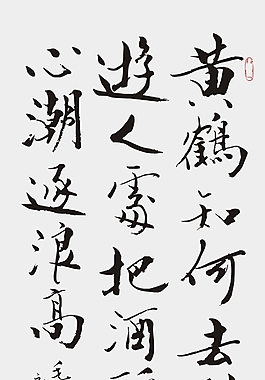 黄鶴知何去
遊人處把酒
心潮逐浪高
毛